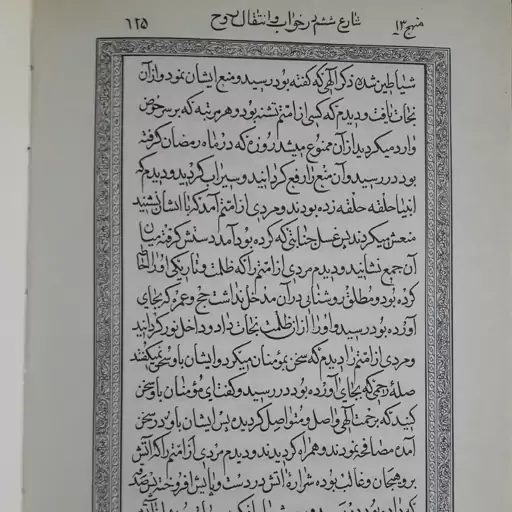 منهج ۱۳ شارع ششم در خواب و انتقال روح ۶۲۵
شیاطین شده ذکر الهی که گفته بود در رسید و منع ایشان نمود و از آن
نجات یافت و دیدم که کسی از امتم تشنه بود و هر مرتبه که بر سر حوض
وارد میگردید از آن ممنوع میشد روزه که در ماه رمضان گرفته
بود در رسید و آن منع را رفع گردانید و سیراب گردید و دیدم که
انبیا حلقه حلقه زده بودند و مردی از امتم آمد که با ایشان نشیند
منعش میکردند پس غسل جنابتی که کرده بود آمد دستش گرفته میان
آن جمع نشانید و دیدم مردی از امتم را که ظلمت و تاریکی او را احاطه
کرده بود و مطلق روشنائی در آن مدخل نداشت حج و عمره که بجای
آورده بود رسید و او را از آن ظلمت نجات داد و داخل نور گردانید
و مردی از امتم را دیدم که سخن بمؤمنان میکرد و ایشان با او سخن نمیگفتند
صله رحمی که بجای آورده بود در رسید و گفت ای مؤمنان با او سخن
کنید که برحمت الهی واصل و متواصل گردیده پس ایشان با او در سخن
آمده مصافحه نمودند و همراه گردیدند و دیدم مردی از امتم را که آتش
برو هیجان و غالب بوده شراره آتش در دست و پایش افروخته پس تصدق
که داده بود در رسید و